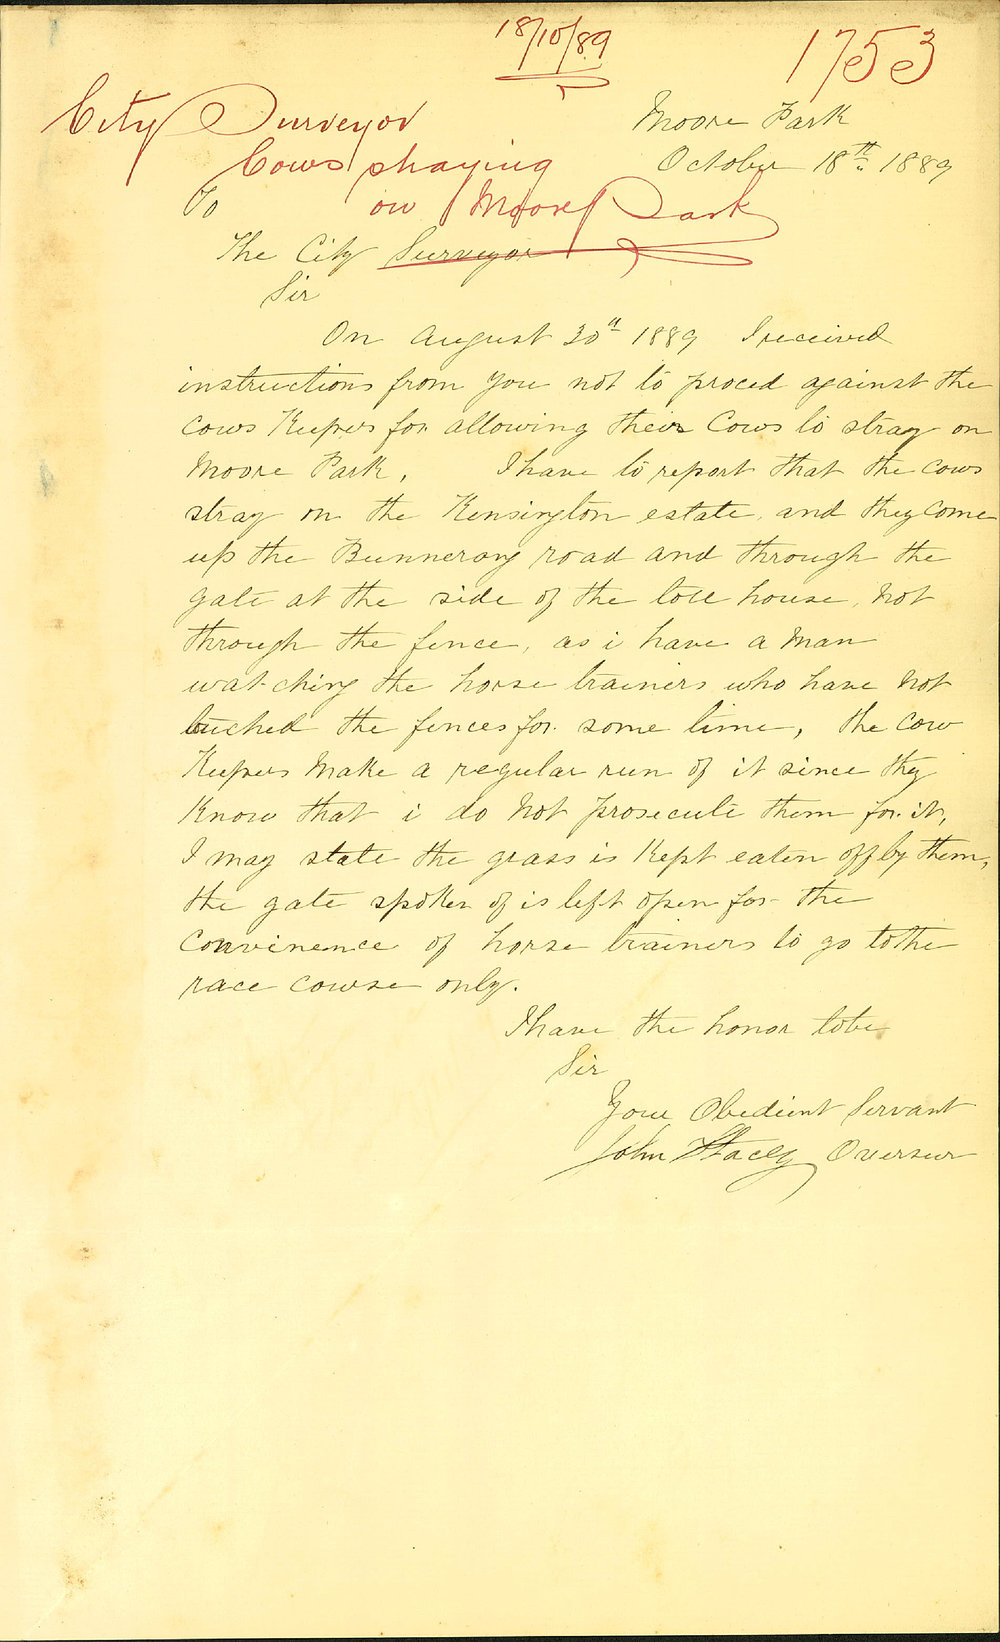 18/10/89
1753
City Surveyor
Cows straying
on Moore Park
Moore Park
October 18th 1889
To
The City Surveyor
Sir
On August 30th 1889 I received
instructions from you not to proced against the
cows Keepers for allowing their Cows to stray on
Moore Park, I have to report that the cows
stray on the Kensington estate, and they come
up the Bunnerong road and through the
gate at the side of the toll house, not
through the fence, as i have a man
watching the horse trainers who have not
tuched the fences for some time, the cow
Keepers make a regular run of it since they
Know that i do not prosecute them for it,
I may state the grass is Kept eaten off by them,
the gate spoken of is left open for the
convinence of horse trainers to go to the
race course only.
I have the honor to be
Sir
Your Obedient Servant
John Stacey Overseer